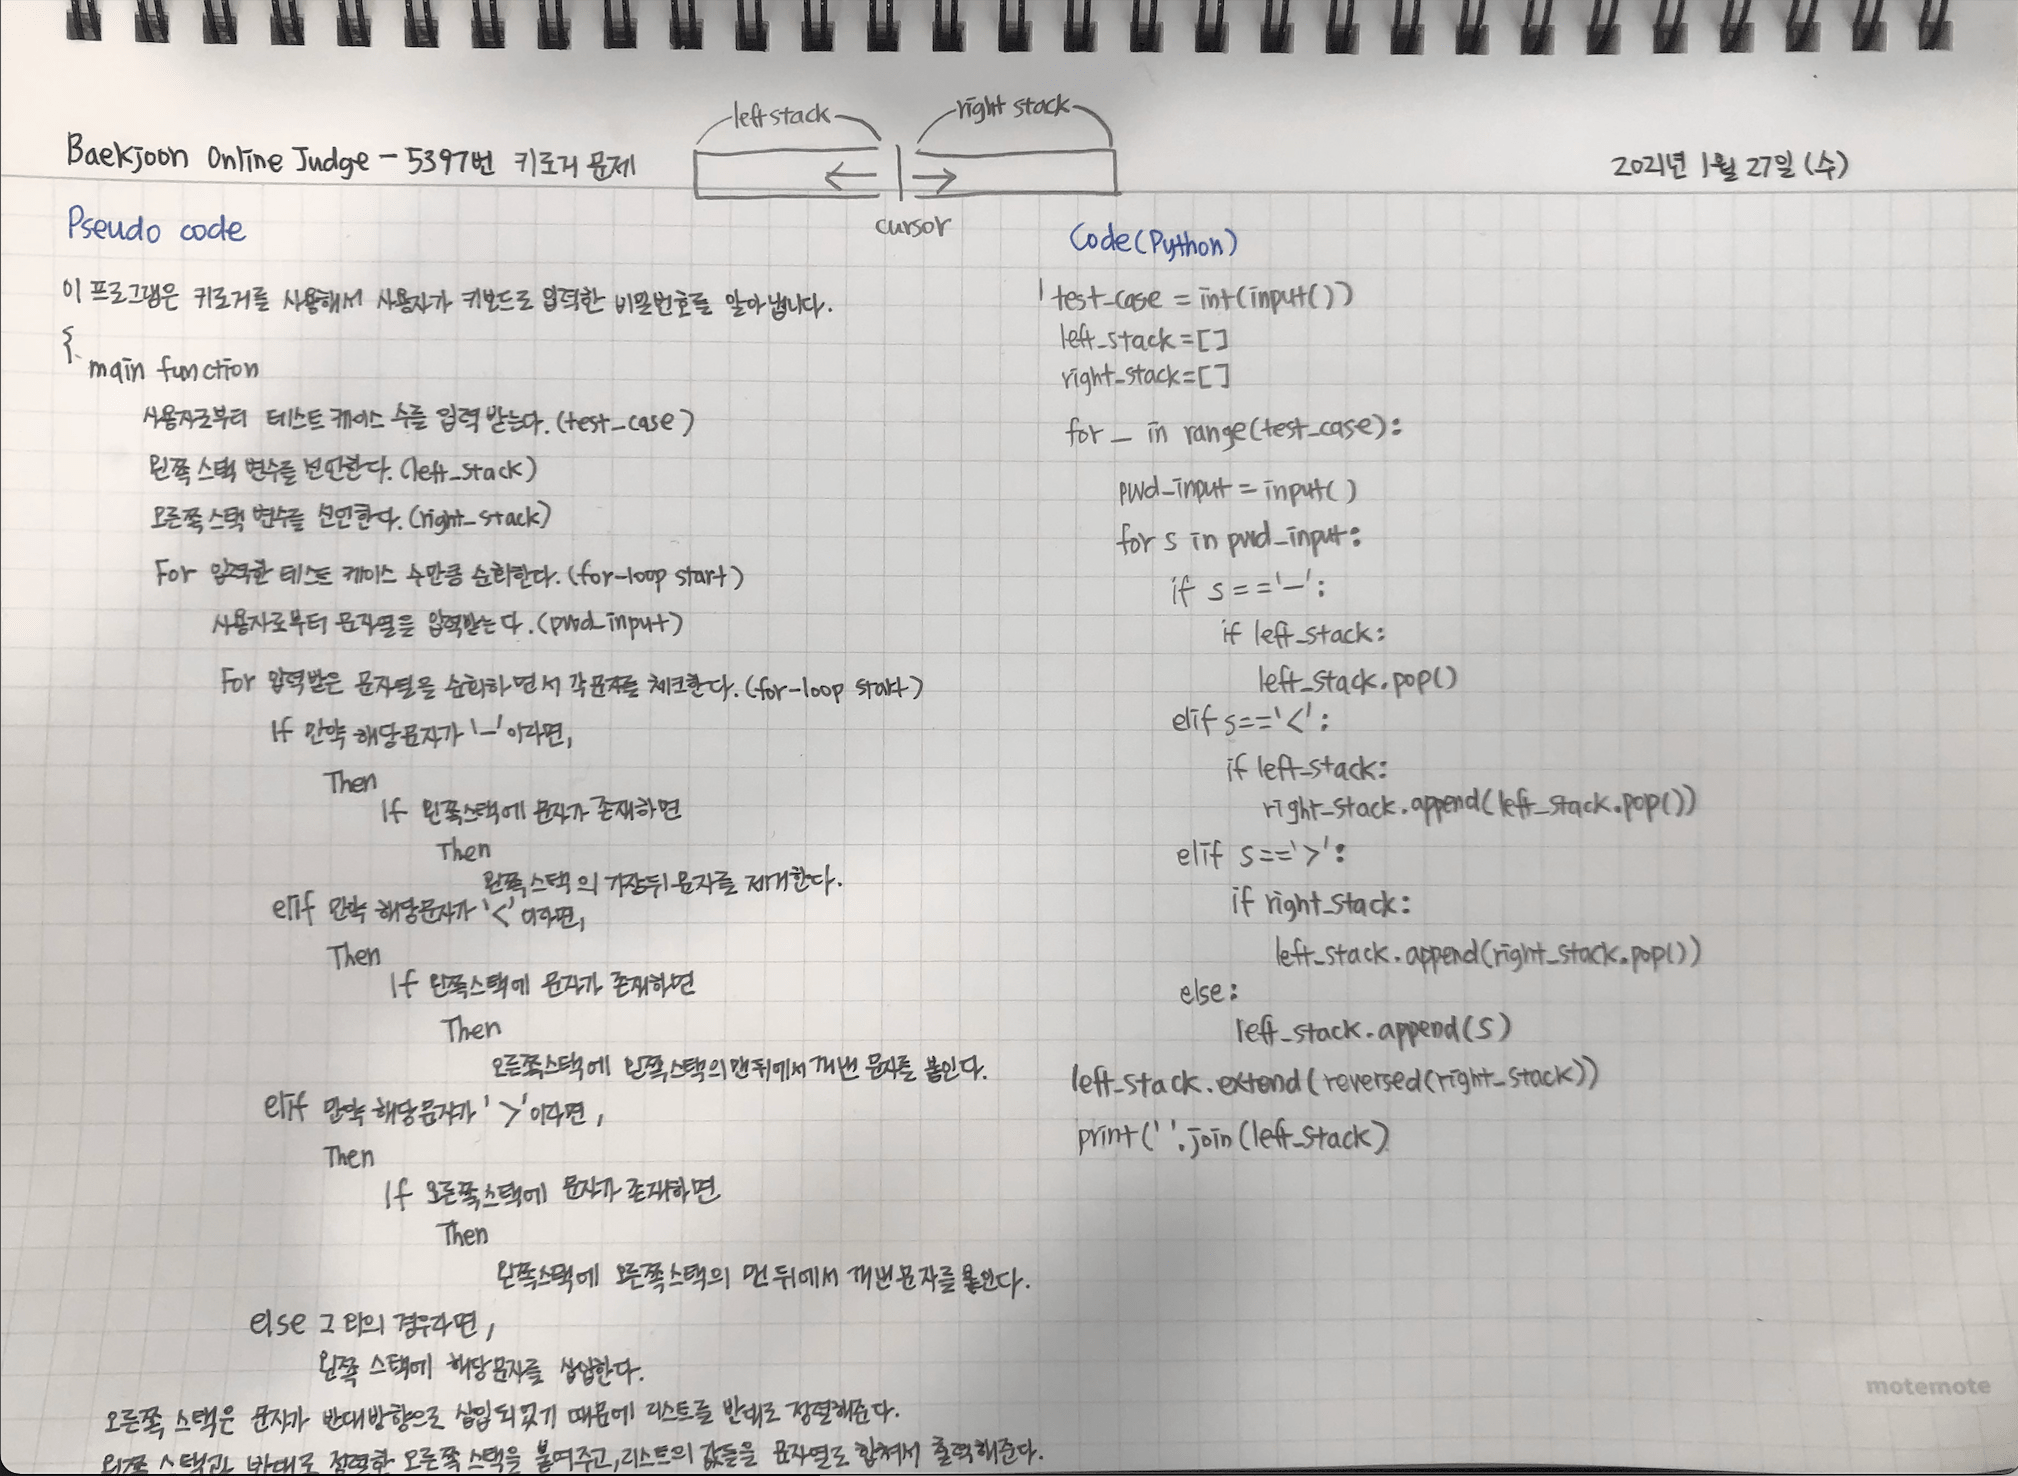 left stack
right stack
Baekjoon Online Judge - 5397번 키로거 문제
2021년 1월 27일 (수)
cursor
Pseudo code
이 프로그램은 키로거를 사용해서 사용자가 키보드로 입력한 비밀번호를 알아냅니다.
{
main function
사용자로부터 테스트 케이스 수를 입력 받는다. (test_case)
왼쪽 스택 변수를 선언한다. (left_stack)
오른쪽 스택 변수를 선언한다. (right_stack)
For 입력한 테스트 케이스 수만큼 순회한다. (for-loop start)
사용자로부터 문자열을 입력받는다. (pwd_input)
For 입력받은 문자열을 순회하면서 각 문자를 체크한다. (for-loop start)
If 만약 해당문자가 '-'이라면,
Then
If 왼쪽스택에 문자가 존재하면
Then
왼쪽스택의 가장뒤 문자를 제거한다.
elif 만약 해당문자가 '<'이라면,
Then
If 왼쪽스택에 문자가 존재하면
Then
오른쪽스택에 왼쪽스택의 맨뒤에서 꺼낸 문자를 붙인다.
elif 만약 해당문자가 '>'이라면,
Then
If 오른쪽스택에 문자가 존재하면
Then
왼쪽스택에 오른쪽스택의 맨 뒤에서 꺼낸 문자를 붙인다.
else 그 외의 경우라면,
왼쪽 스택에 해당문자를 삽입한다.
오른쪽 스택은 문자가 반대방향으로 삽입되었기 때문에 리스트를 반대로 정렬해준다.
왼쪽 스택과 반대로 정렬한 오른쪽 스택을 붙여주고, 리스트의 값들을 문자열로 합쳐서 출력해준다.
Code(Python)
test_case = int(input())
left_stack=[]
right_stack=[]
for _ in range(test_case):
pwd_input = input()
for s in pwd_input:
if s=='-':
if left_stack:
left_stack.pop()
elif s=='<':
if left_stack:
right_stack.append(left_stack.pop())
elif s=='>':
if right_stack:
left_stack.append(right_stack.pop())
else:
left_stack.append(s)
left_stack.extend(reversed(right_stack))
print(''.join(left_stack)
motemote